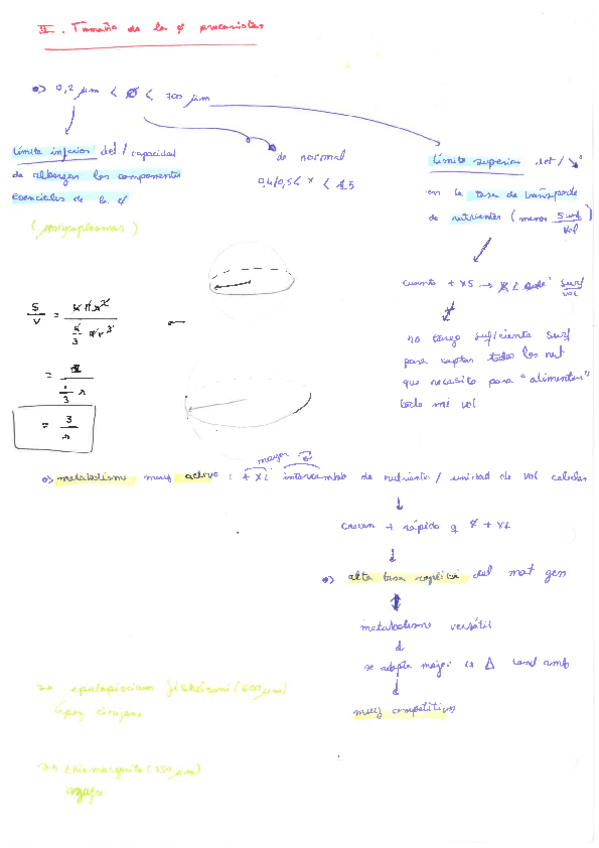 II. Tamaño de la ¢ procariotas
•) 0,2 µm < Ø < 700 µm
Límite inferior det / capacidad
de albergar los componentes
esenciales de la ¢
(micoplasmas)
de normal
0,4/0,5 < x < 1.5
Límite superior det / ↘
en la tasa de transporte
de nutrientes (menos Surf/Vol)
cuanto + XS → Surf/vol
no tengo suficiente surf
para captar todos los nut
que necesito para "alimentar"
todo mi vol
S/V = 4πr² / 4/3 πr³
= 1 / 1/3 r
= 3/r
mayor
•) metabolismo muy activo: intercambio de nutrientes / unidad de vol celular
crecen + rápido q
•) alta tasa replicación del mat gen
metabolismo versátil
se adapta mejor a Δ cond amb
muy competitivos
epulopiscium fishelsoni (600 µm)
pez cirujano
thiomargarita (750 µm)
azufre